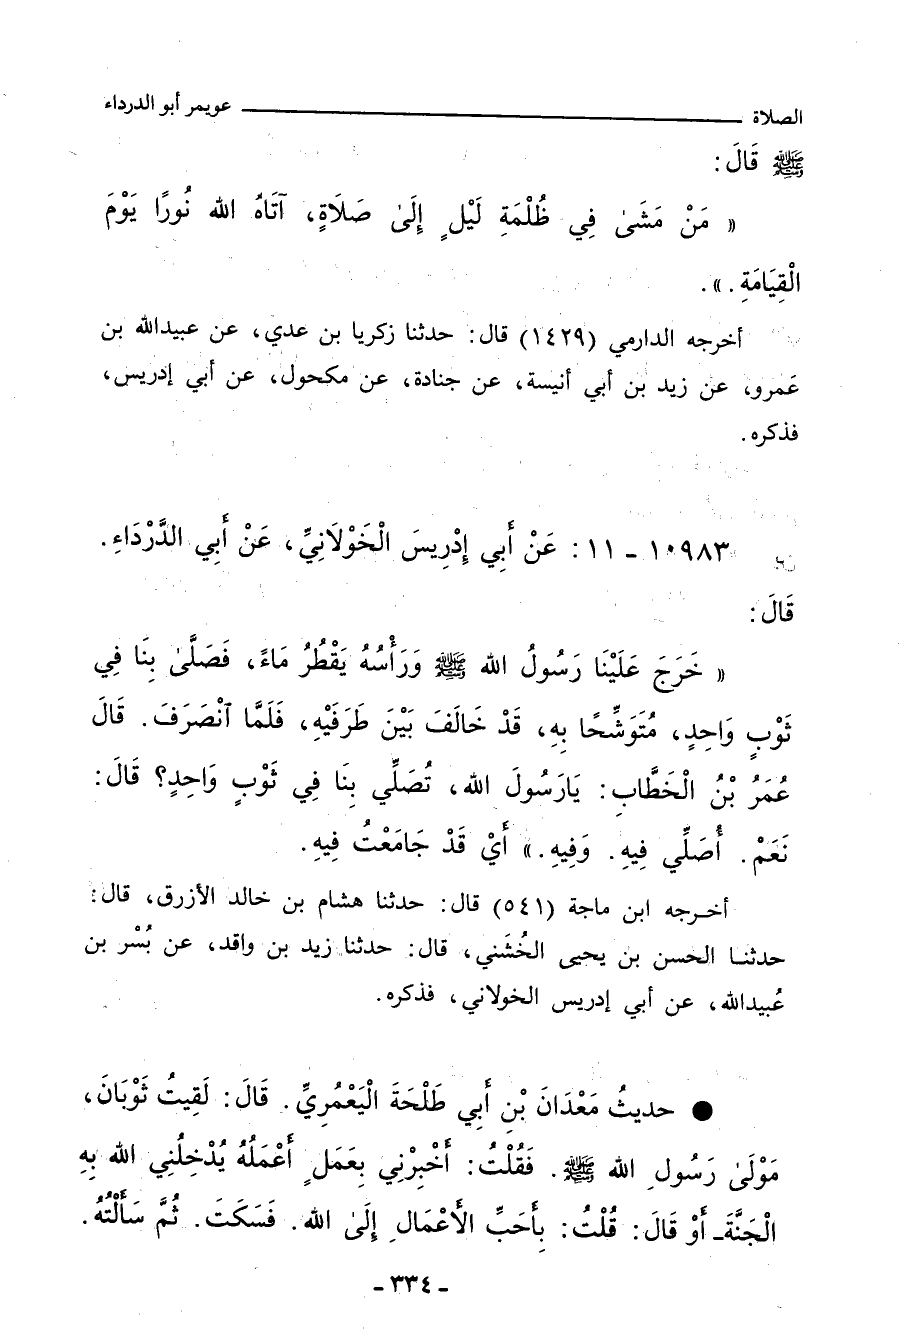 الصلاة ــــــــــــــ عويمر أبو الدرداء
ﷺ قَالَ:
« مَنْ مَشَىٰ فِي ظُلْمَةِ لَيْلٍ إِلَىٰ صَلَاةٍ، آتَاهُ الله نُورًا يَوْمَ
الْقِيَامَةِ.».
أخرجه الدارمي (١٤٢٩) قال: حدثنا زكريا بن عدي، عن عبيدالله بن
عَمرو، عن زيد بن أبي أنيسة، عن جنادة، عن مكحول، عن أبي إدريس،
فذكره.
١٠٩٨٣ - ١١: عَنْ أَبي إِدْرِيسَ الْخَوْلَانِيِّ، عَنْ أَبي الدَّرْدَاءِ.
قَالَ:
« خَرَجَ عَلَيْنَا رَسُولُ الله ﷺ وَرَأْسُهُ يَقْطُرُ مَاءً، فَصَلَّىٰ بِنَا فِي
ثَوْبٍ وَاحِدٍ، مُتَوَشِّحًا بِهِ، قَدْ خَالَفَ بَيْنَ طَرَفَيْهِ، فَلَمَّا ٱنْصَرَفَ. قَالَ
عُمَرُ بْنُ الْخَطَّابِ: يَارَسُولَ الله، تُصَلِّي بِنَا فِي ثَوْبٍ وَاحِدٍ؟ قَالَ:
نَعَمْ. أُصَلِّي فِيهِ. وَفِيهِ.» أَيْ قَدْ جَامَعْتُ فِيهِ.
أخـرجه ابن ماجة (٥٤١) قال: حدثنا هشام بن خالد الأزرق، قال:
حدثنـا الحسن بن يحيى الخُشَني، قال: حدثنا زيد بن واقد، عن بُسْر بن
عُبيدالله، عن أبي إدريس الخولاني، فذكره.
● حديثُ مَعْدَانَ بْنِ أَبي طَلْحَةَ الْيَعْمُرِيِّ. قَالَ: لَقِيتُ ثَوْبَانَ،
مَوْلَىٰ رَسُولِ الله ﷺ. فَقُلْتُ: أَخْبِرْنِي بِعَمَلٍ أَعْمَلُهُ يُدْخِلُنِي الله بِهِ
الْجَنَّةَـ أَوْ قَالَ: قُلْتُ: بِأَحَبِّ الأَعْمَالِ إِلَىٰ الله. فَسَكَتَ. ثُمَّ سَأَلْتُهُ.
- ٣٣٤ -